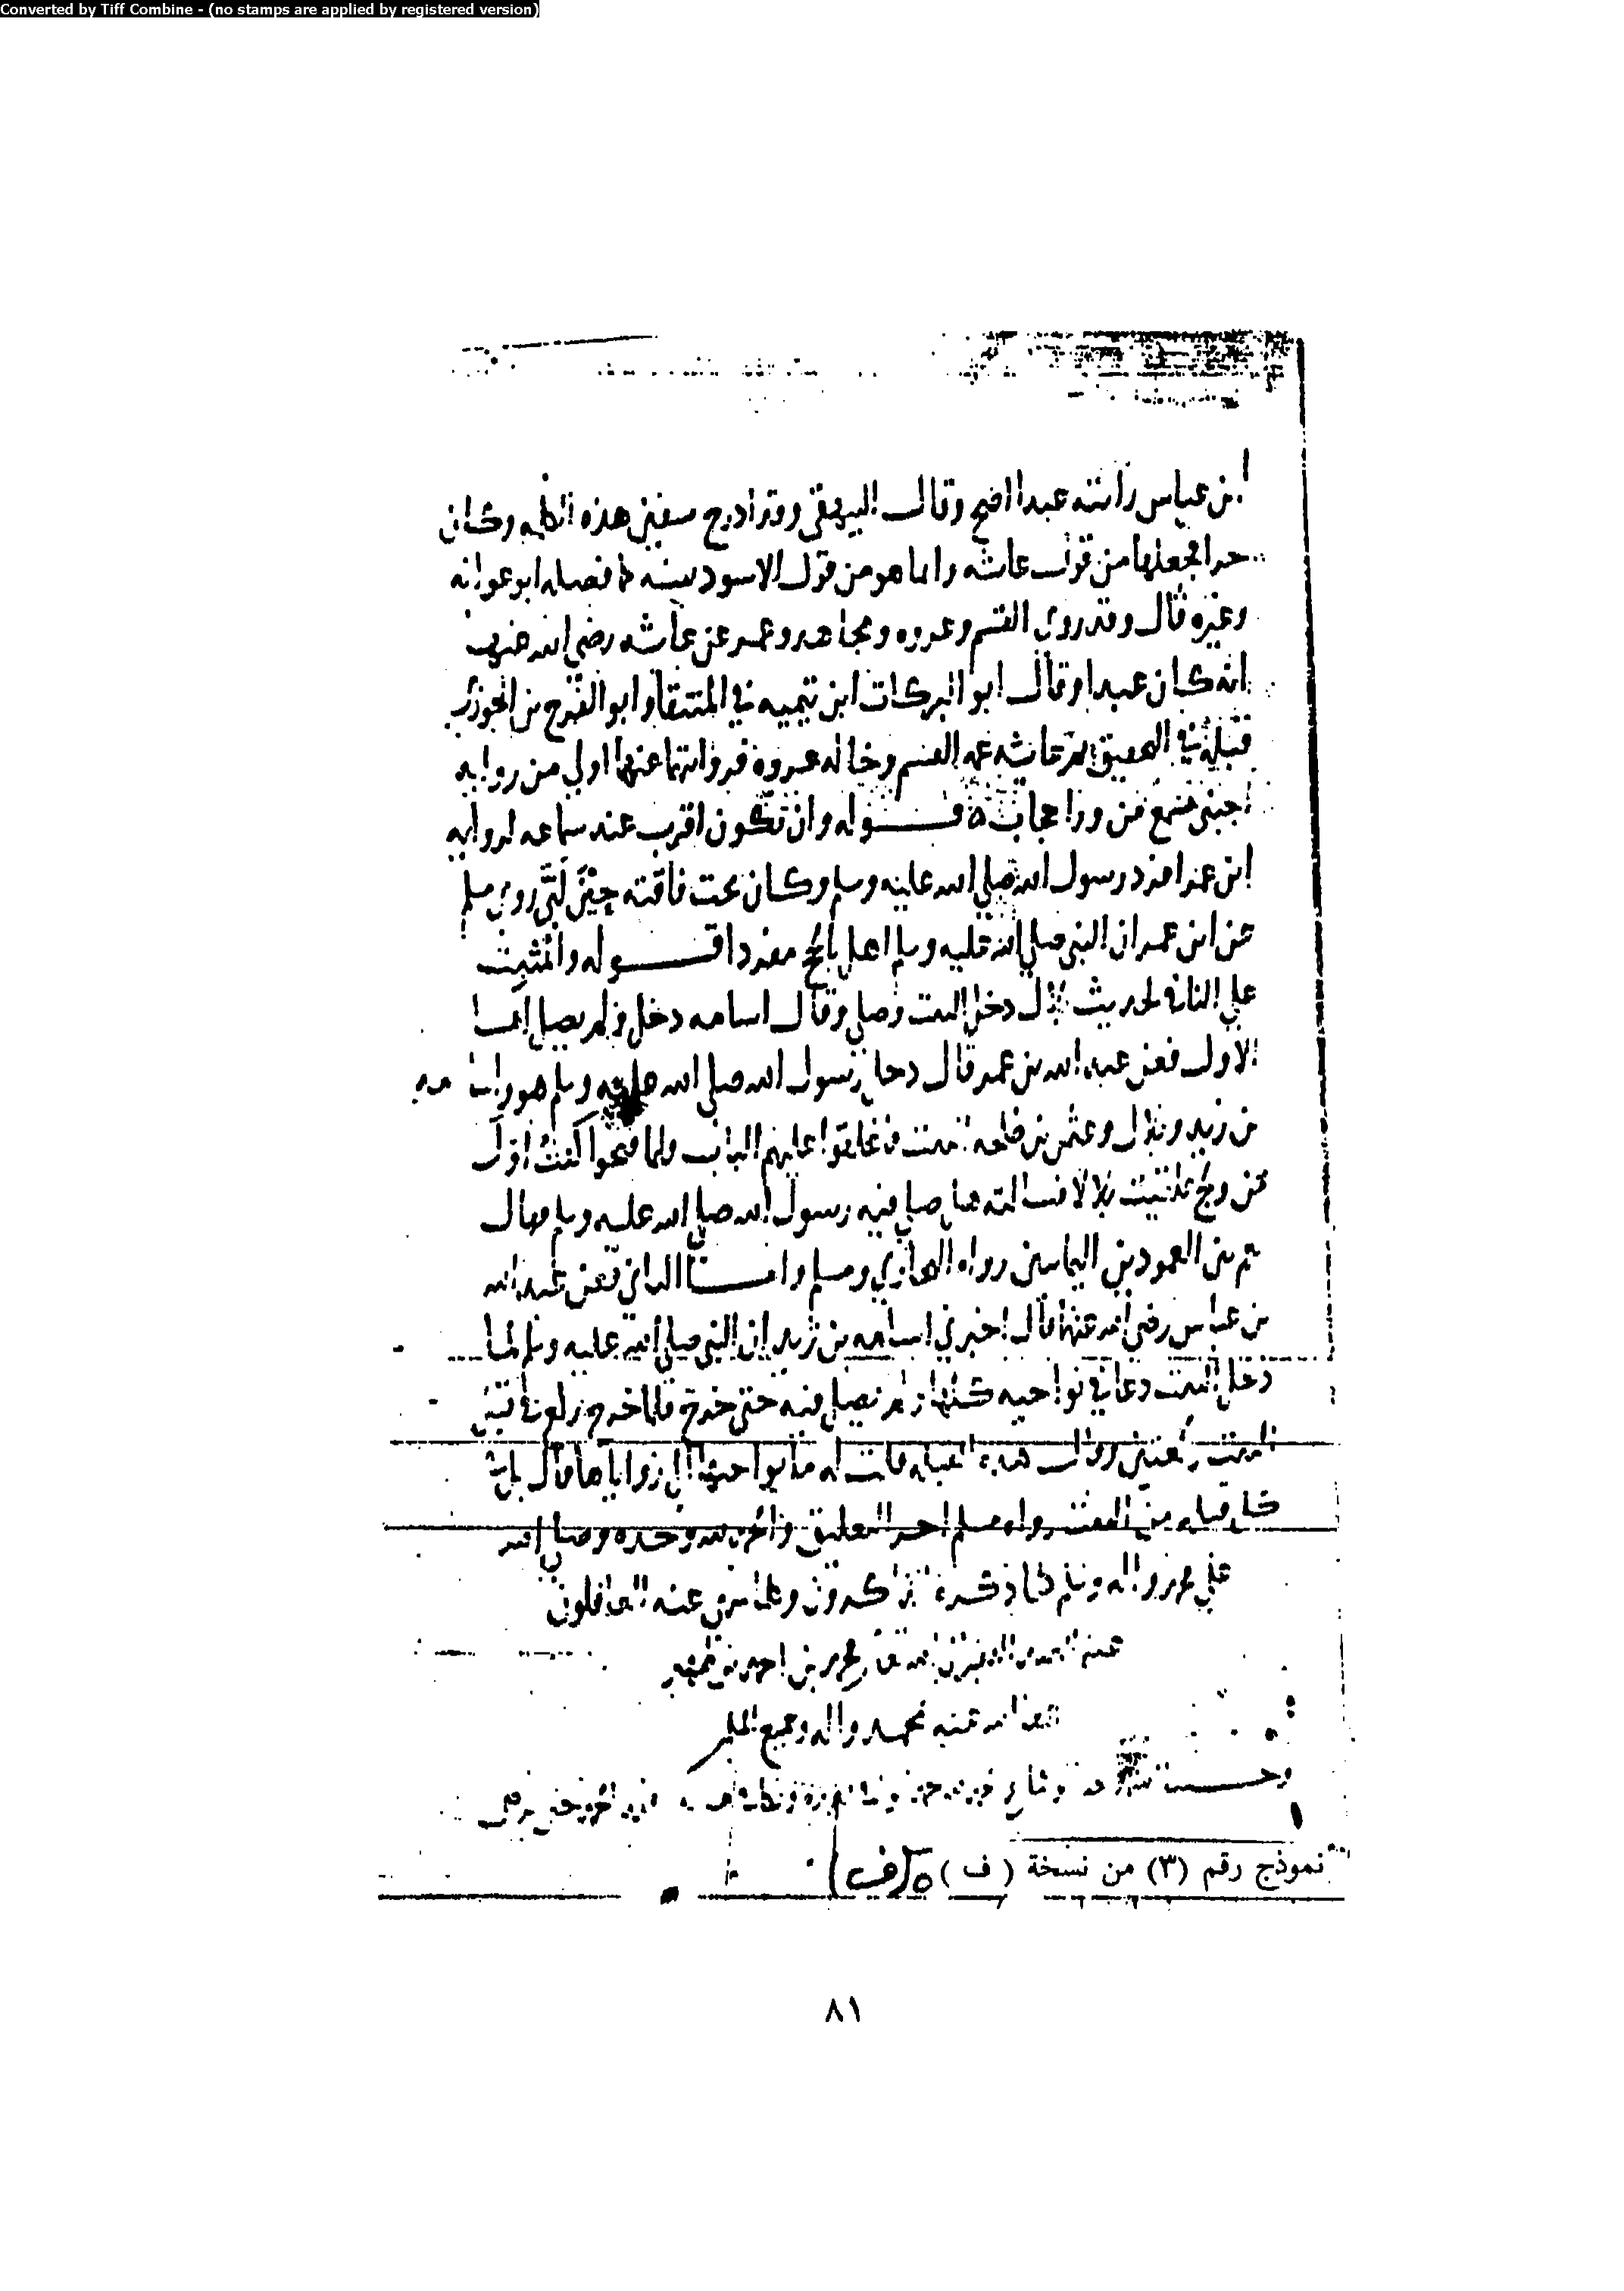 Converted by Tiff Combine - (no stamps are applied by registered version)
ابن عباس رأيته عبدا اصح وقال البيهقي وقد ادرج سفين هذه الكلمه وكان
حرا فجعلها من قول عائشه وانما هو من قول الاسود بينه كما فصله ابو عوانه
وغيره قال وقد روى القسم وعروه ومجاهد وعمره عن عائشه رضي الله عنها
انه كان عبدا وقال ابو البركات ابن تيميه في المنتقا وابو الفرج بن الجوزي
قبله في التحقيق عائشه عمة القسم وخاله عروه فروايتهما عنها اولى من روايه
اجنبي سمع من ورا حجاب ٥ قوله وان تكون اقرب عند سماعه لروايه
ابن عمر افرد رسول الله صلى الله عليه وسلم وكان تحت ناقته حين لبى روى مسلم
عن ابن عمر ان النبي صلى الله عليه وسلم اهل بالحج مفردا قوله والمثبت
على النافي لحديث بلال دخل البيت وصلى وقال اسامه دخل ولم يصل اما
الاول فعن عبد الله بن عمر قال دخل رسول الله صلى الله عليه وسلم هو واسامه
بن زيد وبلال وعثمن بن طلحه البيت فاغلقوا عليهم الباب فلما فتحوا كنت اول
من ولج فلقيت بلالا فسالته هل صلى فيه رسول الله صلى الله عليه وسلم قال
نعم بين العمودين اليمانيين رواه البخاري ومسلم واما الثاني فعن عبد الله
بن عباس رضي الله عنهما قال اخبرني اسامه بن زيد ان النبي صلى الله عليه وسلم لما
دخل البيت دعا في نواحيه كلها ولم يصل فيه حتى خرج فلما خرج ركع في قبل
البيت ركعتين وقال هذه القبله قلت له ما نواحيها افي زواياها قال بل في
كل قبله من البيت رواه مسلم اخر التعليق والحمد لله وحده وصلى الله
على محمد واله وسلم كلما ذكره الذاكرون وكلما سهى عنه الغافلون
محمد بن احمد بن
عفا الله عنه بمحمد واله وجميع المسلمين
نموذج رقم (٣) من نسخة ( ف ) ٥ (ف)
٨١